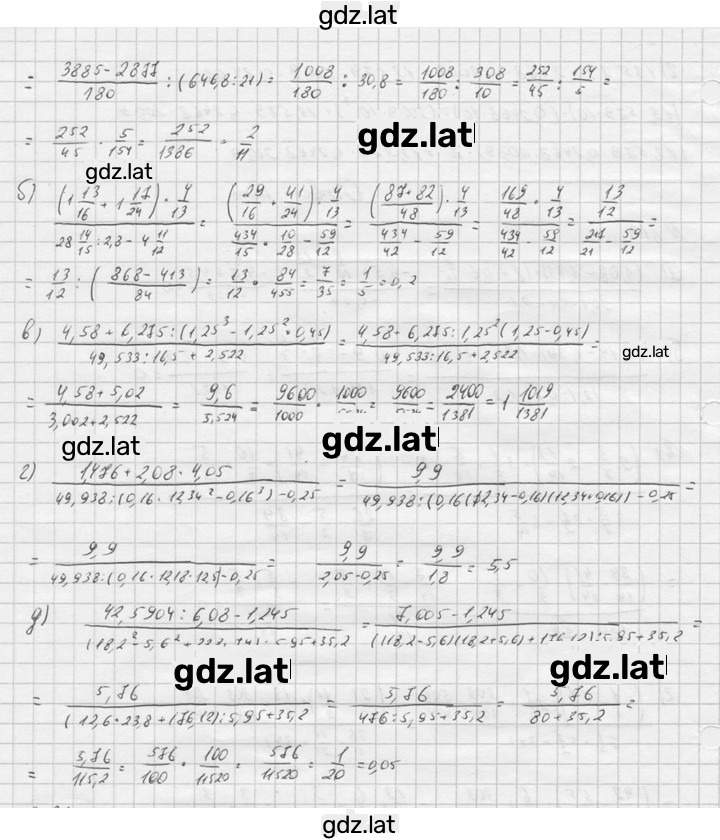 gdz.lat
= (3885-2877)/180 : (646,8:21) = 1008/180 : 30,8 = 1008/180 : 308/10 = 252/45 : 154/5 =
= 252/45 · 5/154 = 252/1386 = 2/11
gdz.lat
gdz.lat
б) ((1 13/16 + 1 17/24) · 4/13)/(28 14/15 : 2,8 - 4 11/12) = ((29/16 + 41/24) · 4/13)/(434/15 · 10/28 - 59/12) = ((87+82)/48 · 4/13)/(434/42 - 59/12) = (169/48 · 4/13)/(434/42 - 59/12) = (13/12)/(217/21 - 59/12) =
= 13/12 : ((868-413)/84) = 13/12 · 84/455 = 7/35 = 1/5 = 0,2
в) (4,58+6,275:(1,25³-1,25²·0,45))/(49,533:16,5+2,522) = (4,58+6,275:1,25²(1,25-0,45))/(49,533:16,5+2,522) =
gdz.lat
= (4,58+5,02)/(3,002+2,522) = 9,6/5,524 = 9600/1000 · 1000/ = 9600/ = 2400/1381 = 1 1019/1381
gdz.lat
gdz.lat
г) (1,476+2,08·4,05)/(49,938:(0,16·12,34²-0,16³)-0,25) = 9,9/(49,938:(0,16(12,34-0,16)(12,34+0,16))-0,25) =
= 9,9/(49,938:(0,16·12,18·12,5)-0,25) = 9,9/(2,05-0,25) = 9,9/1,8 = 5,5
д) (42,5904:6,08-1,245)/((18,2²-5,6²+):5,95+35,2) = (7,005-1,245)/(((18,2-5,6)(18,2+5,6)+176,12):5,95+35,2) =
gdz.lat
gdz.lat
= 5,76/((12,6·23,8+176,12):5,95+35,2) = 5,76/(476:5,95+35,2) = 5,76/(80+35,2) =
= 5,76/115,2 = 576/100 · 100/11520 = 576/11520 = 1/20 = 0,05
gdz.lat